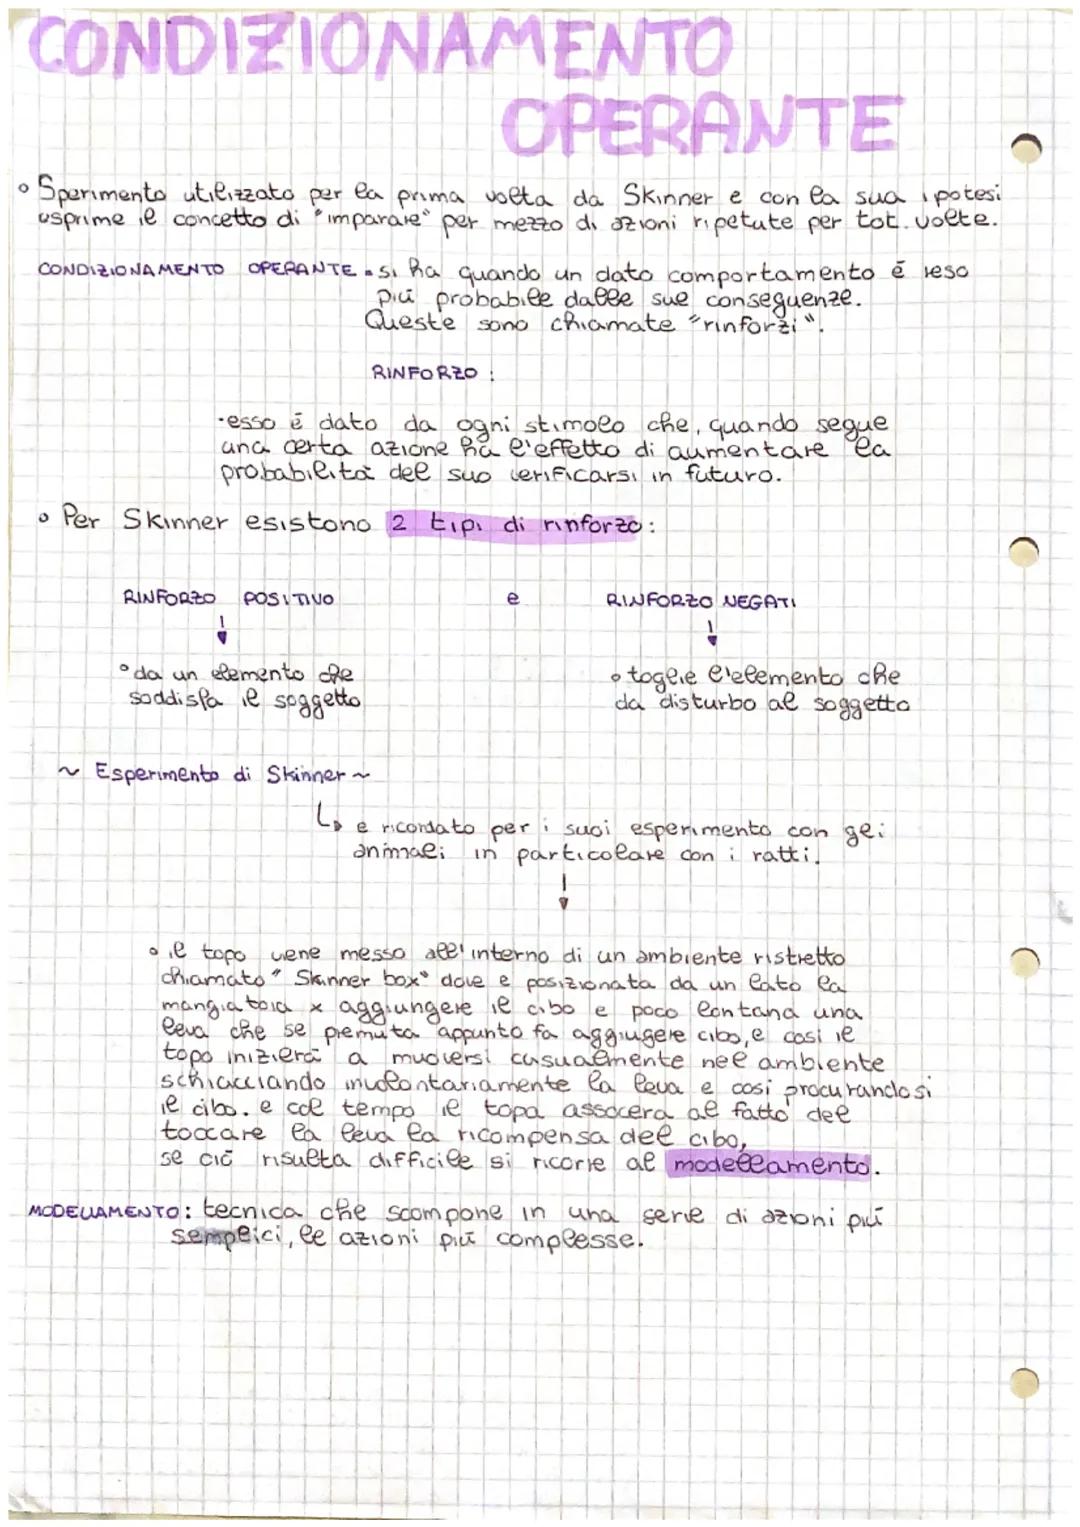 CONDIZIONAMENTO
OPERANTE
Sperimento utilizzato per la prima volta da Skinner e con la sua ipotesi
esprime il concetto di "imparare" per mezzo di azioni ripetute per tot. volte.
CONDIZIONAMENTO OPERANTE • si ha quando un dato comportamento é reso
piú probabile dalle sue conseguenze.
Queste sono chiamate "rinforzi".
RINFORZO :
-esso é dato da ogni stimolo che, quando segue
una certa azione ha l'effetto di aumentare la
probabilitá del suo verificarsi in futuro.
Per Skinner esistono 2 tipi di rinforzo:
RINFORZO POSITIVO e RINFORZO NEGATI
da un elemento che
soddisfa il soggetto
toglie l'elemento che
da disturbo al soggetto
~ Esperimento di Skinner ~
e ricordato per i suoi esperimento con gli
animali in particolare con i ratti.
il topo viene messo all'interno di un ambiente ristretto
chiamato "Skinner box" dove e posizionata da un lato la
mangiatoia x aggiungere il cibo e poco lontana una
leva che se premuta appunto fa aggiugere cibo, e cosi il
topo inizierá a muoversi casualmente nel ambiente
schiacciando involontariamente la leva e cosi procurandosi
il cibo. e col tempo il topa assocera al fatto del
toccare la leva la ricompensa del cibo,
se ció risulta difficile si ricorre al modellamento.
MODELLAMENTO: tecnica che scompone in una serie di azioni piú
semplici, le azioni piú complesse.